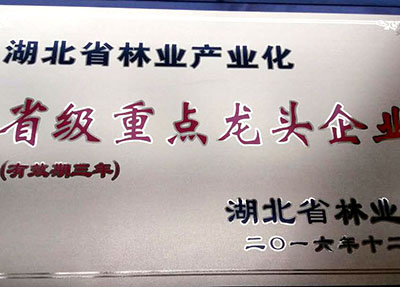 湖北省林业产业化
省级重点龙头企业
(有效期三年)
湖北省林业
二〇一六年十二